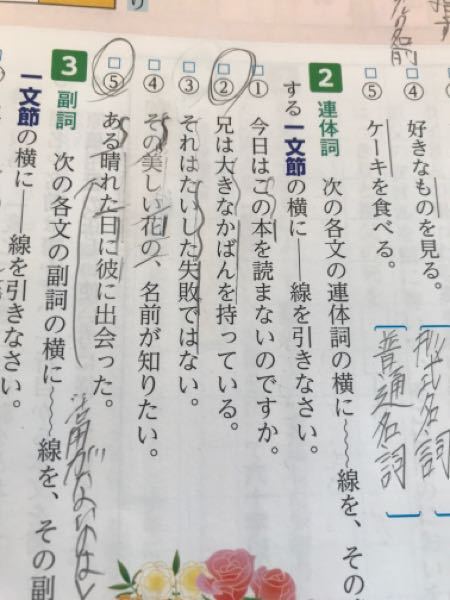 名前
指す
④ 好きなものを見る。
形式名詞
⑤ ケーキを食べる。
普通名詞
2 連体詞 次の各文の連体詞の横に〜〜線を、その
する一文節の横に——線を引きなさい。
① 今日はこの本を読まないのですか。
② 兄は大きなかばんを持っている。
③ それはたいした失敗ではない。
④ その美しい花の、名前が知りたい。
⑤ ある晴れた日に彼に出会った。
3 副詞 次の各文の副詞の横に〜〜線を、その副
一文節の横に——線を引きなさい。